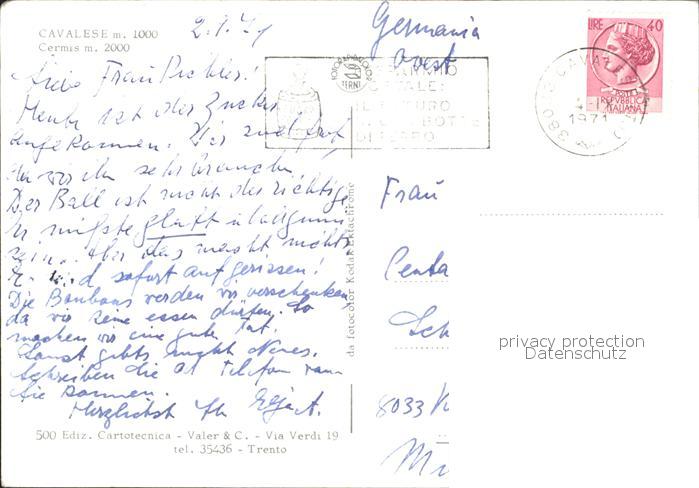 CAVALESE m. 1000
Cermis m. 2000
2.1.71
Liebe Frau Pichler!
Heute ist der Zucker
angekommen. Wir
da wir ihn sehr brauchen.
Der Ball ist nicht der richtige
Er müsste glatt
sein. Aber das macht nichts
Er wird sofort aufgerissen!
Die Bonbons werden wir verschenken
da wir keine essen dürfen. So
machen wir eine gute Tat.
Sonst gibts nicht Neues.
Schreiben Sie
Sie kommen.
Herzlichst Ihr
500 Ediz. Cartotecnica - Valer & C. - Via Verdi 19
tel. 35436 - Trento
da fotocolor Kodak Ektachrome
Germania
Ovest
LIRE 40
POSTE
REPVBBLICA
ITALIANA
1971
Frau
Centa
Sch
8033 K
Mü
privacy protection
Datenschutz